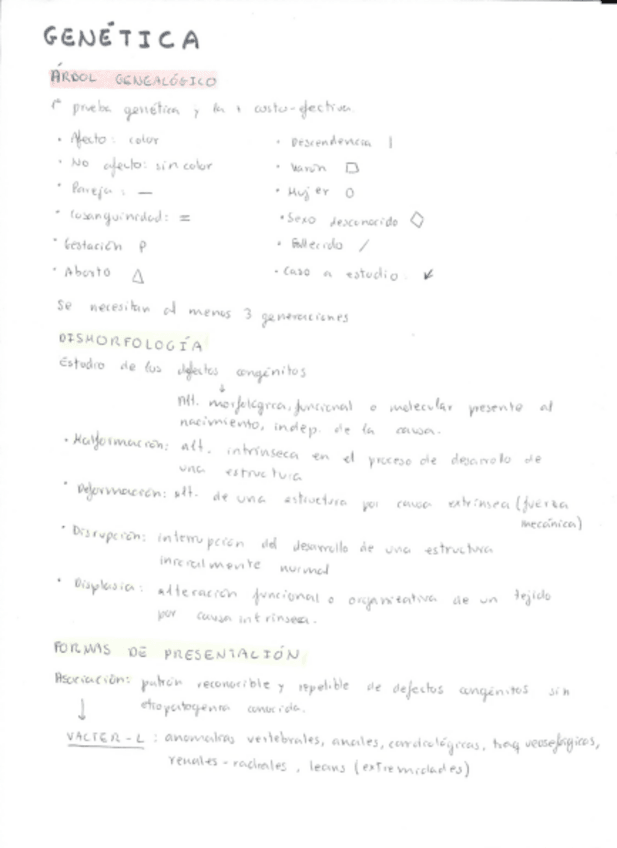 GENÉTICA
ÁRBOL GENEALÓGICO
1ª prueba genética y la + costo-efectiva.
· Afecto: color
· Descendencia |
· No afecto: sin color
· Varón □
· Pareja: —
· Mujer O
· Cosanguinidad: =
· Sexo desconocido ◇
· Gestación P
· Fallecido /
· Aborto △
· Caso a estudio: ↙
Se necesitan al menos 3 generaciones
DISMORFOLOGÍA
Estudio de los defectos congénitos
↓
Alt. morfológica, funcional o molecular presente al
nacimiento, indep. de la causa.
· Malformación: alt. intrínseca en el proceso de desarrollo de
una estructura
· Deformación: alt. de una estructura por causa extrínseca (fuerza
mecánica)
· Disrupción: interrupción del desarrollo de una estructura
inicialmente normal
· Displasia: alteración funcional o organizativa de un tejido
por causa intrínseca.
FORMAS DE PRESENTACIÓN
Asociación: patrón reconocible y repetible de defectos congénitos sin
etiopatogenia conocida.
↓
VACTER-L: anomalías vertebrales, anales, cardiológicas, traqueoesofágicas,
renales-radiales, (extremidades)